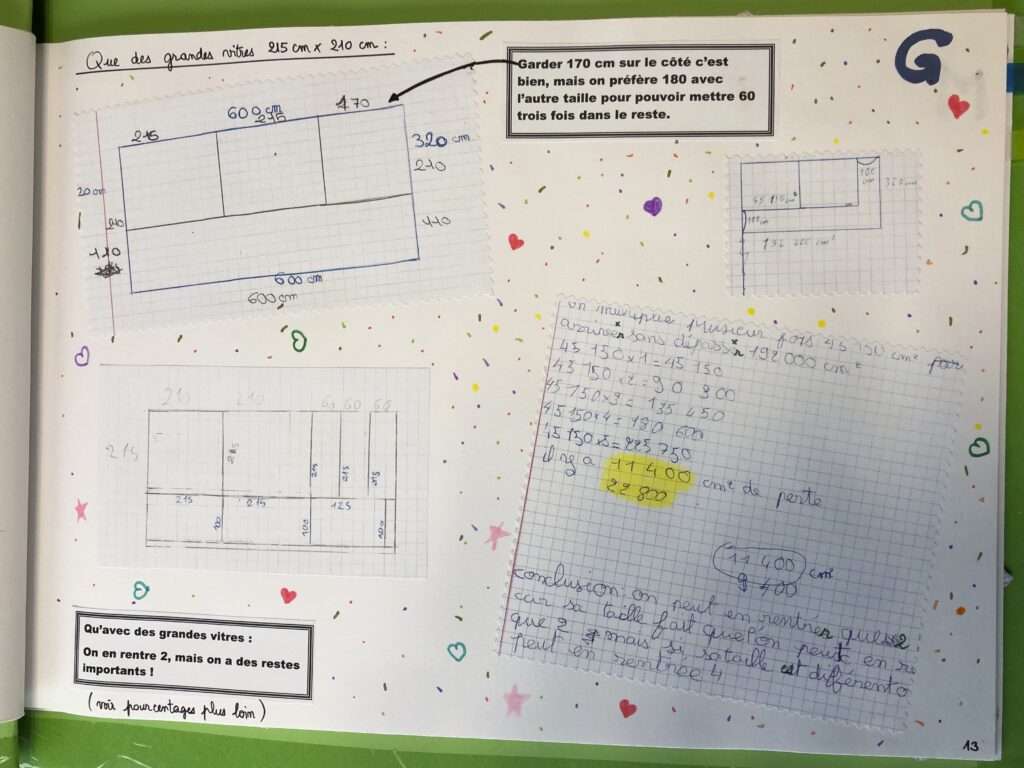 Que des grandes vitres 215 cm x 210 cm :
G
Garder 170 cm sur le côté c'est
bien, mais on préfère 180 avec
l'autre taille pour pouvoir mettre 60
trois fois dans le reste.
600 cm
215
215
170
320 cm
210
20 cm
210
110
110
600 cm
600 cm
45 150 cm²
110 cm
192 000 cm²
on multiplie plusieur fois 45 150 cm² pour
sans dépasser 192 000 cm²
45 150 x 1 = 45 150
45 150 x 2 = 90 300
45 150 x 3 = 135 450
45 150 x 4 = 180 600
45 150 x 5 = 225 750
il y a 11 400 cm² de perte
22 800
11 400 cm²
9 400
conclusion on peut en rentrer que 2
car sa taille fait que l'on peut en
que 2 mais si sa taille est différente
peut en rentrée 4
210 210 60 60 60
215
215
215
215
215
215 215 125
100
100
100
Qu'avec des grandes vitres :
On en rentre 2, mais on a des restes
importants !
(voir pourcentages plus loin)
13